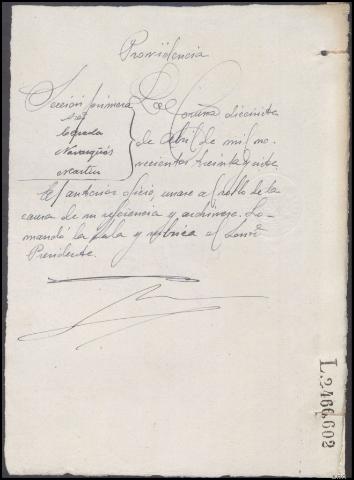 Providencia
Sección primera
Sres
Cepeda
Navarques
Martin
La Coruña diecisiete
de Abril de mil no-
vecientos treinta y siete.
El anterior oficio, unase al rollo de la
causa de su referencia y archivese. Lo
mandó la Sala y rubrica el Señor
Presidente.
L.2466,602